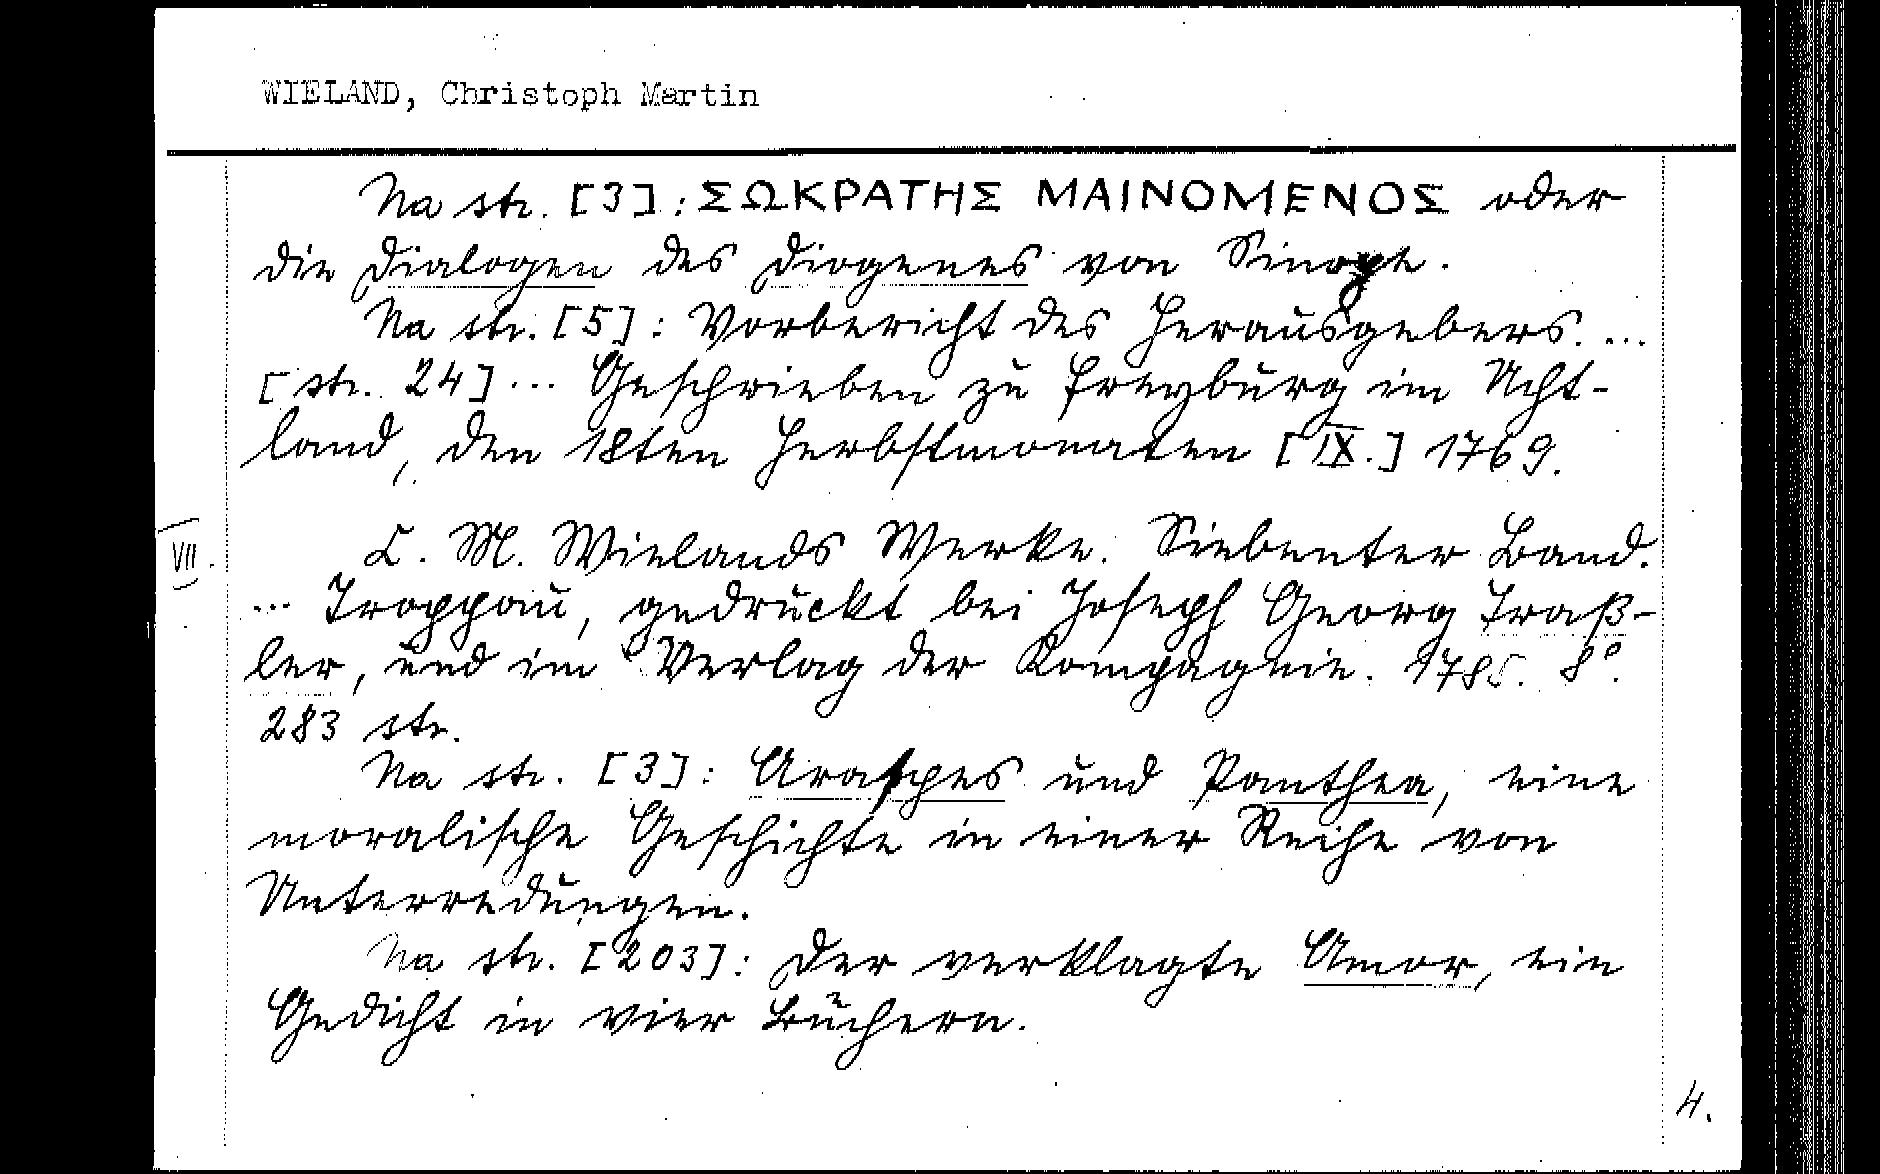 WIELAND, Christoph Martin
Na str. [3]: ΣΩΚΡΑΤΗΣ ΜΑΙΝΟΜΕΝΟΣ oder
die Dialogen des Diogenes von Sinope.
Na str. [5]: Vorbericht des Herausgebers. ...
[str. 24] ... Geschrieben zu Freyburg im Ucht-
land, den 18ten Herbstmonaten [IX.] 1769.
VII.
C. M. Wielands Werke. Siebenter Band.
... Troppau, gedruckt bei Joseph Georg Traß-
ler, und im Verlag der Kompagnie. 1785. 8°.
283 str.
Na str. [3]: Araspes und Panthea, eine
moralische Geschichte in einer Reihe von
Unterredungen.
Na str. [203]: Der verklagte Amor, ein
Gedicht in vier Büchern.
4.